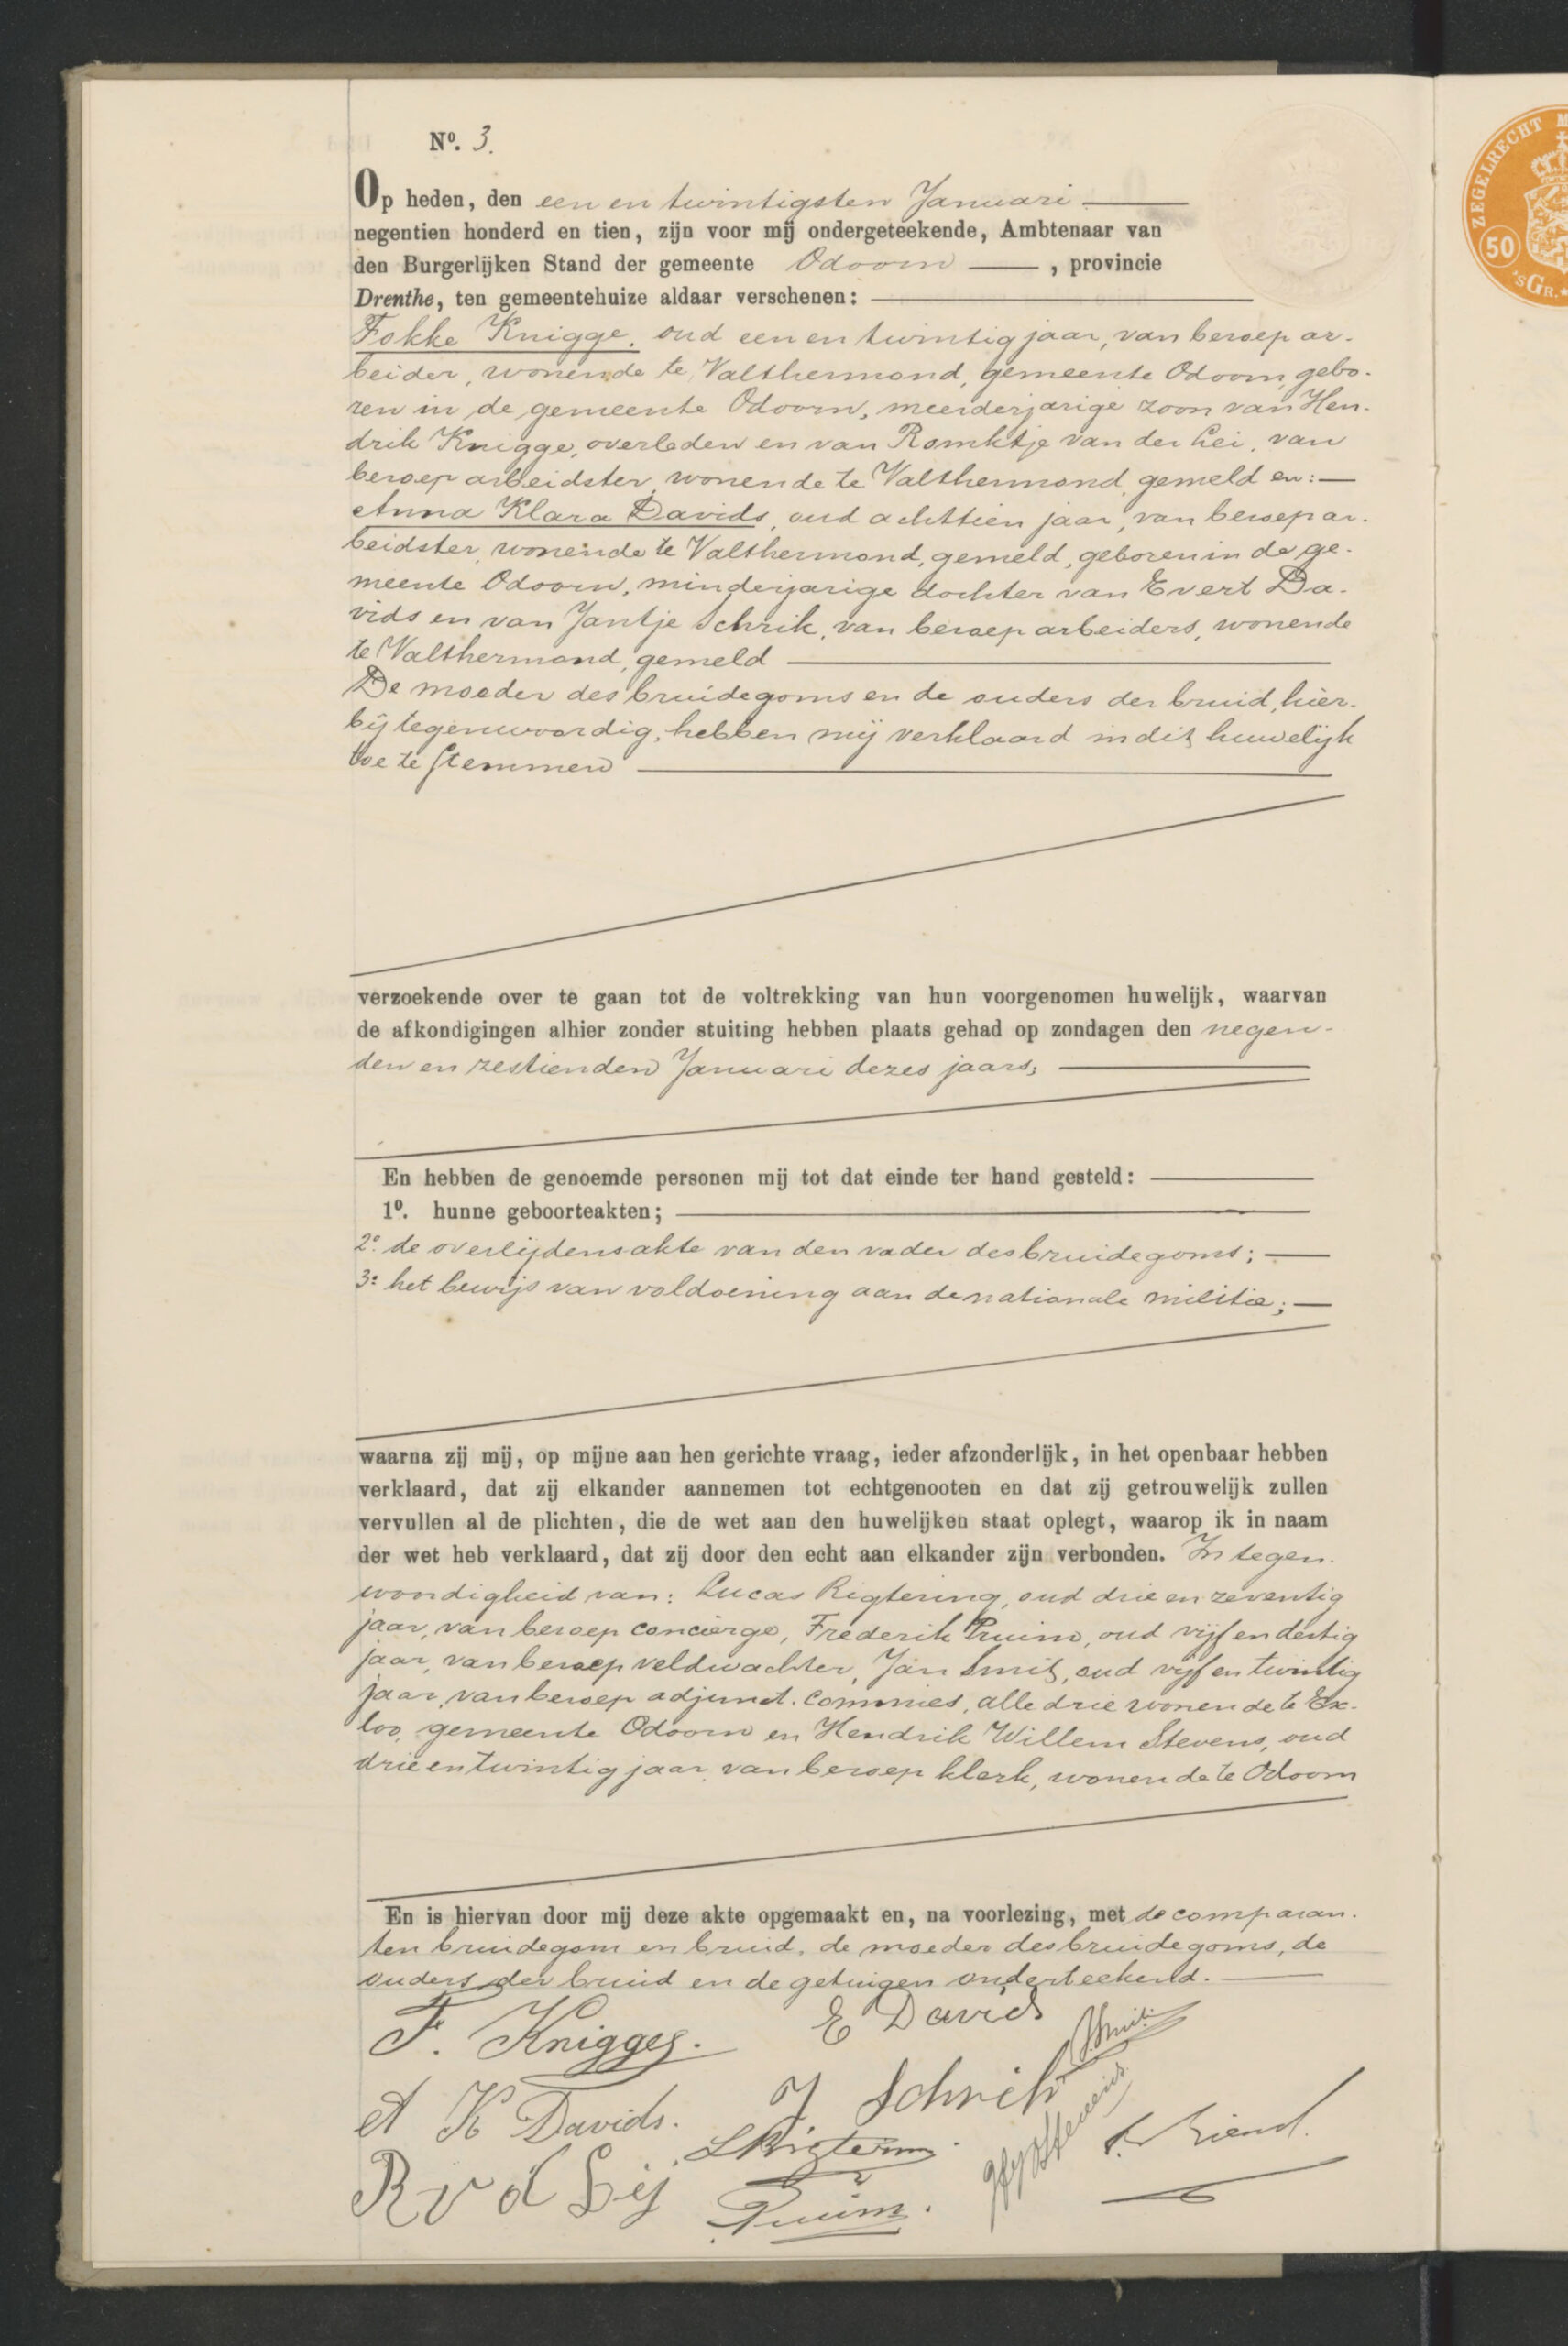 Nº. 3.
Op heden, den een en twintigsten Januari
negentien honderd en tien, zijn voor mij ondergeteekende, Ambtenaar van
den Burgerlijken Stand der gemeente Odoorn, provincie
Drenthe, ten gemeentehuize aldaar verschenen:
Fokke Knigge, oud een en twintig jaar, van beroep ar-
beider, wonende te Valthermond, gemeente Odoorn, gebo-
ren in de gemeente Odoorn, meerderjarige zoon van Hen-
drik Knigge, overleden en van Romktje van der Lei, van
beroep arbeidster, wonende te Valthermond, gemeld en:
Anna Klara Davids, oud achttien jaar, van beroep ar-
beidster, wonende te Valthermond, gemeld, geboren in de ge-
meente Odoorn, minderjarige dochter van Evert Da-
vids en van Jantje Schrik, van beroep arbeiders, wonende
te Valthermond, gemeld
De moeder des bruidegoms en de ouders der bruid, hier-
bij tegenwoordig, hebben mij verklaard in dit huwelijk
toe te stemmen
verzoekende over te gaan tot de voltrekking van hun voorgenomen huwelijk, waarvan
de afkondigingen alhier zonder stuiting hebben plaats gehad op zondagen den negen-
den en zestienden Januari dezes jaars,
En hebben de genoemde personen mij tot dat einde ter hand gesteld:
1º. hunne geboorteakten;
2º. de overlijdensakte van den vader des bruidegoms;
3º het bewijs van voldoening aan de nationale militie;
waarna zij mij, op mijne aan hen gerichte vraag, ieder afzonderlijk, in het openbaar hebben
verklaard, dat zij elkander aannemen tot echtgenooten en dat zij getrouwelijk zullen
vervullen al de plichten, die de wet aan den huwelijken staat oplegt, waarop ik in naam
der wet heb verklaard, dat zij door den echt aan elkander zijn verbonden. In tegen-
woordigheid van: Lucas Rigtering, oud drie en zeventig
jaar, van beroep concierge, Frederik Pruim, oud vijf en dertig
jaar, van beroep veldwachter, Jan Smit, oud vijf en twintig
jaar, van beroep adjunct-commies, alle drie wonende te Ex-
loo, gemeente Odoorn en Hendrik Willem Stevens, oud
drie en twintig jaar, van beroep klerk, wonende te Odoorn
En is hiervan door mij deze akte opgemaakt en, na voorlezing, met de comparan-
ten bruidegom en bruid, de moeder des bruidegoms, de
ouders der bruid en de getuigen onderteekend.
F. Knigge.
E Davids
JSmit
A K Davids.
J Schrik
HWStevens
LRigtering.
R v d Leij
Pruim.
ZEGELRECHT
50